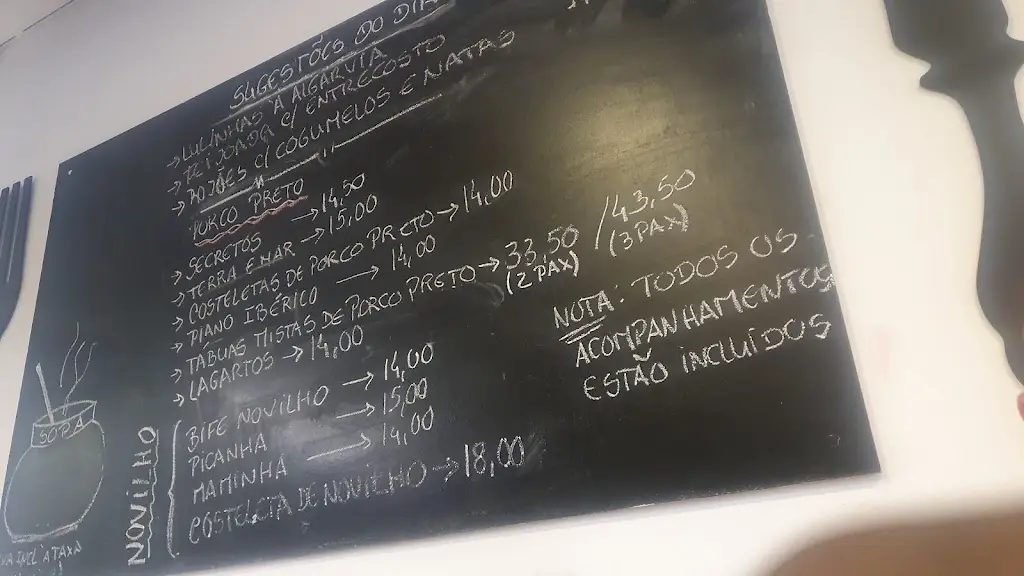 SUGESTÕES DO DIA
→ LULINHAS À ALGARVIA
→ FEIJOADA c/ ENTRECOSTO
→ ROJÕES c/ COGUMELOS E NATAS
PORCO PRETO
→ SECRETOS → 14,50
→ TERRA E MAR → 15,00
→ COSTELETAS DE PORCO PRETO → 14,00
→ PIANO IBÉRICO → 14,00
→ TABUAS MISTAS DE PORCO PRETO → 33,50 / 43,50
(2 PAX) (3 PAX)
→ LAGARTOS → 14,00
NOVILHO
BIFE NOVILHO → 14,00
PICANHA → 15,00
MAMINHA → 14,00
COSTELETA DE NOVILHO → 18,00
NOTA: TODOS OS
ACOMPANHAMENTOS
ESTÃO INCLUÍDOS
SOPA